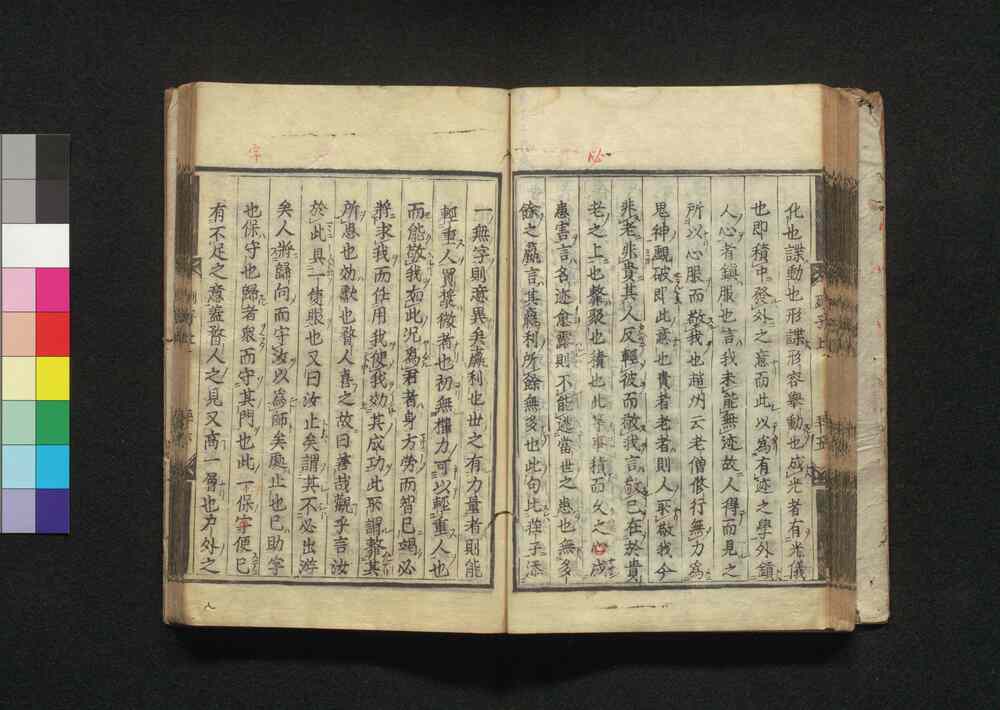 化也諜動也形諜形容擧動也成光者有光儀
也即積中發外之意而此以爲有迹之學外鎮
人心者鎮服也言我未能無迹故人得而見之
所以心服而敬我也趙州云老僧修行無力爲
鬼神覷破即此意也貴者老者則人所敬我今
非老非貴其人反輕彼而敬我言敬已在於貴
老之上也 也 積也此等事積而久之必成
患害言名迹愈露則不能逃當世之患也無多
餘之贏言其爲利所餘無多也此句比莊子添
一無字則意異矣贏利也世之有力量者則能
輕重人買漿微者也初無權力可以輕重人也
而能敬我如此况爲君者身方勞而智已竭必
將求我而任用我使我効其成功此所謂 其
所患也効 也瞀人喜之故曰善哉觀乎言汝
於此具一 眼也又曰汝止矣謂其不必出游
矣人將歸向而守汝以爲師矣處止也已助字
也保守也歸者衆而守其門也此一保字便已
有不足之意蓋瞀人之見又高一層也户外之
字